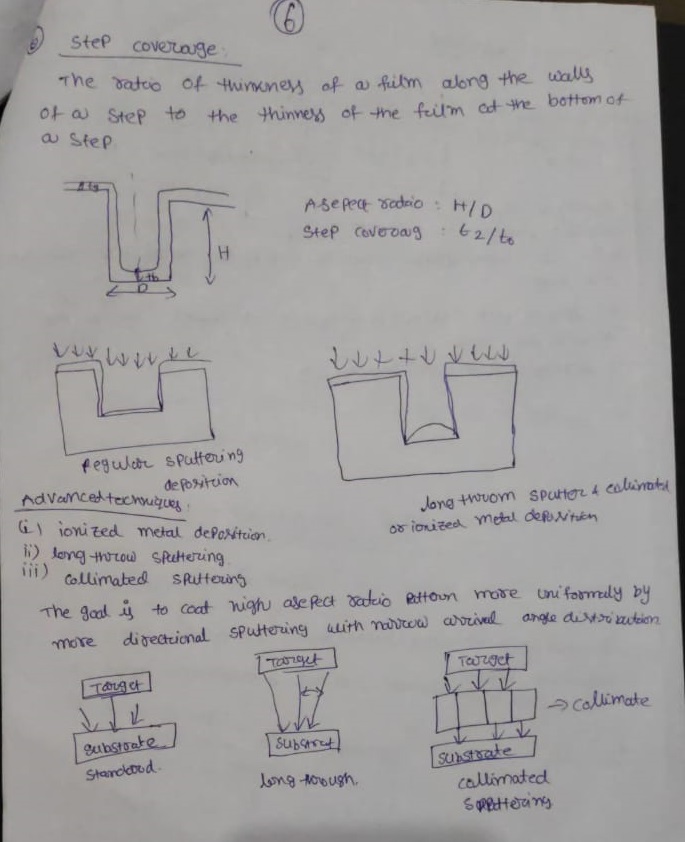 6
Step coverage:
The ratio of thinkness of a film along the walls
of a step to the thinness of the film at the bottom of
a step.
Asepect ratio : H/D
Step coverag : t2/to
H
tb
D
Regular sputtering
deposition
long throom sputter & callimated
or ionized metal deposition
Advanced techniques.
(i) ionized metal deposition.
ii) long-throw sputtering.
iii) callimated sputtering
The goal is to coat high asepect ratio pattern more uniformaly by
more directional sputtering with narrow arrival angle distribution.
Target
Target
Target
→ callimate
Substrate
Substrat
Substrate
Standard.
long through.
callimated
sputtering